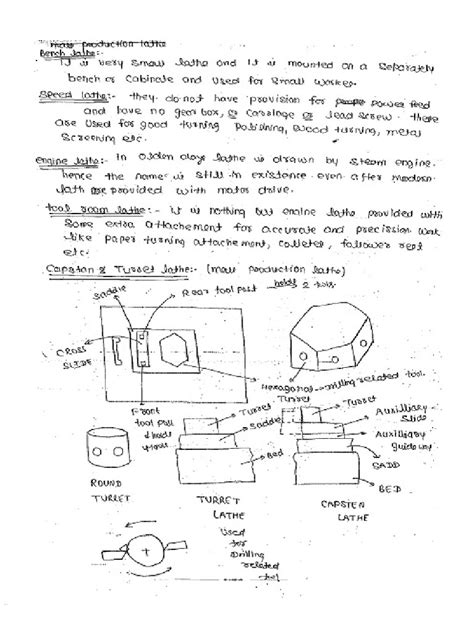 mass production lathe
Bench lathe:-
It is very small lathe and it is mounted on a separately
bench or cabinate and used for small worker.
Speed lathe:- they do not have provision for power feed
and have no gear box, or carriage or lead screw. there
are used for good turning polishing, wood turning, metal
screening etc.
engine lathe:- In olden days lathe is drawn by steam engine.
hence the name is still in existence even after modern
lath are provided with motor drive.
tool room lathe:- it is nothing but engine lathe provided with
some extra attachement for accurate and precission work
like paper turning attachement, colletes, follower rest
etc.
Capstan & Turret lathe:- (mass production lathe)
saddle
Rear tool post holds 2 tools
CROSS
SLIDE
Hexagonal drilling related tool.
Turret
Front
tool post
4 holds
4 tools
Turret
saddle
Bed
Turret
Auxilliary
slide
Auxilliary
guideway
SADD
BED
ROUND
TURRET
TURRET
LATHE
CAPSTEN
LATHE
Used
for
Drilling
related
tool